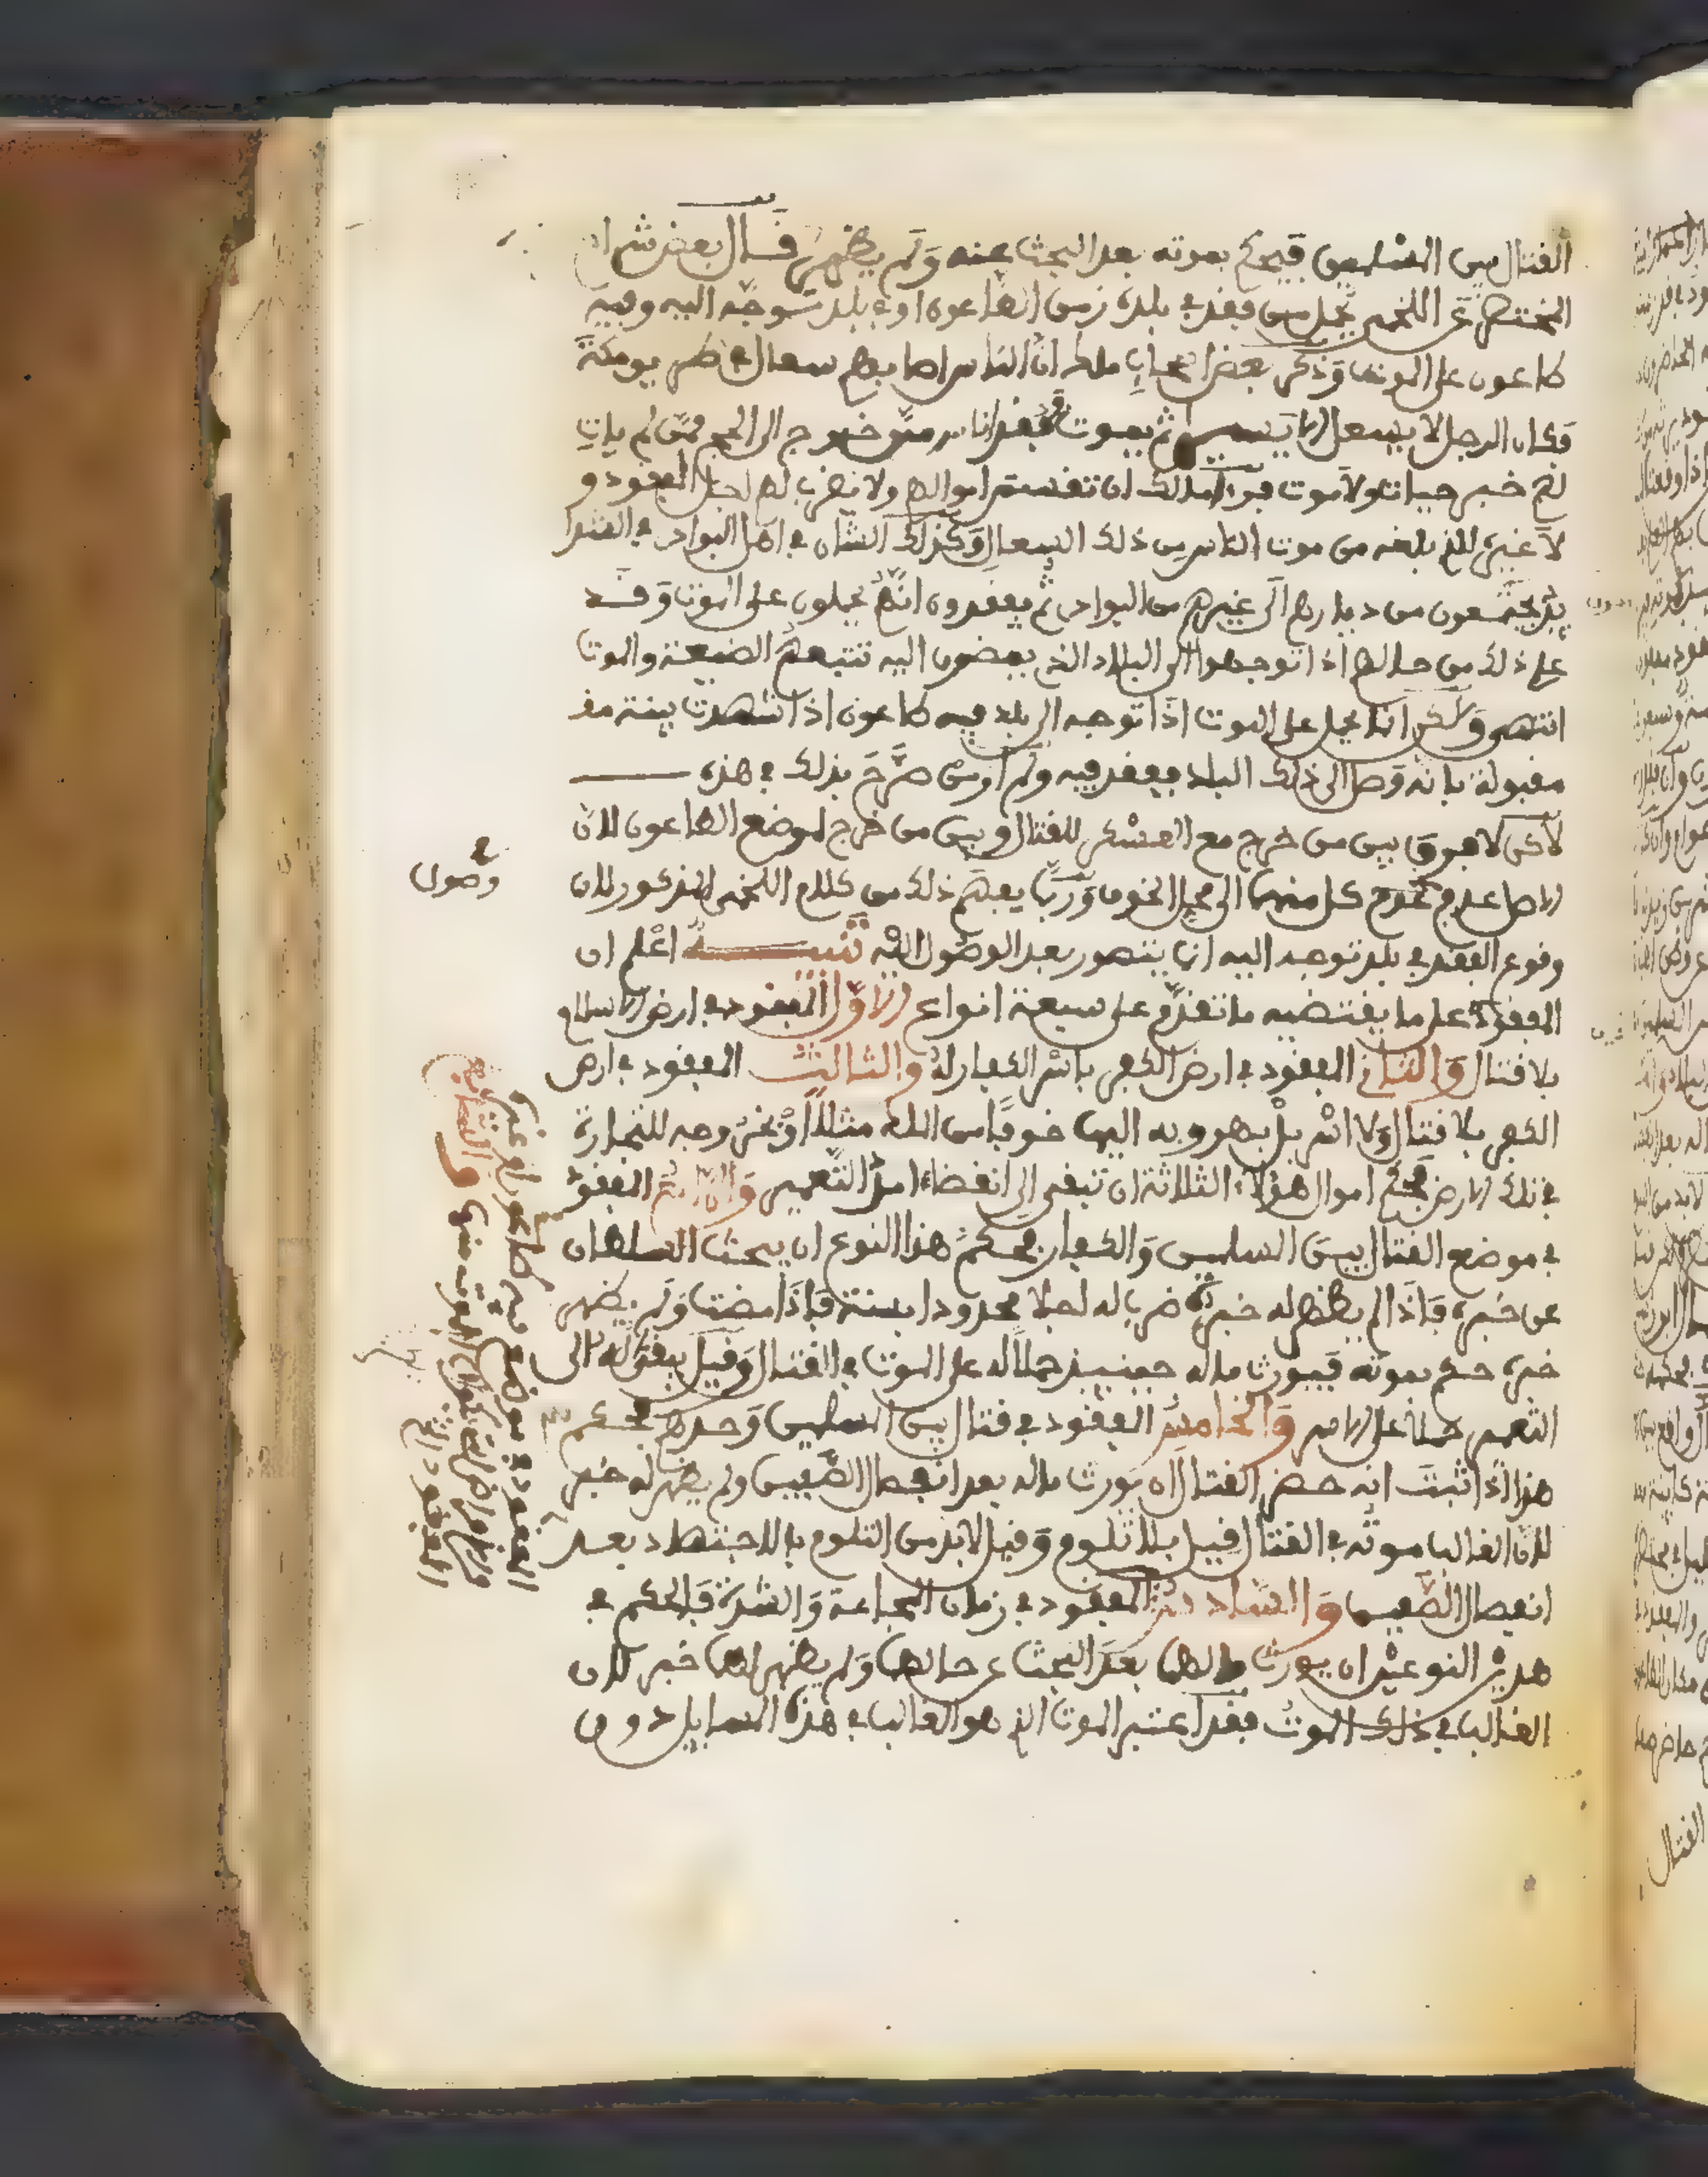 القتال بين المسلمين فيحكم بموته بعد البحث عنه ولم يظهر قال بعض شراح
المختصر عن اللخمي يحمل من فقد في بلده زمن الطاعون او في بلد توجه اليه وفيه
طاعون على الموت وذكر بعض اصحاب ملك ان الناس اصابهم سعال في طريق مكة
فكان الرجل لا يسعل الا يسير ثم يموت ففقد ناس ممن خرج الى الحج فمن لم يات
لهم خبر حياة ولا موت فراى ملك ان تقسم اموالهم ولا يضرب لهم اجل المفقود و
لا غيره للذي بلغه من موت الناس من ذلك السعال وكذلك الشان في اهل البوادي في الشدا
يد ينتجعون من ديارهم الى غيرهم من البوادي ثم يفقدون انهم يحملون على الموت وقد
علم ذلك من حالهم اذا توجهوا الى البلاد الذي يمضون اليه تتبعهم الضيعة والموت
انتهى ولكن انما يحمل على الموت اذا توجه الى بلد فيه طاعون اذا شهدت بينة مق
مقبولة بانه وصل الى ذلك البلد ففقد فيه ولم ار من صرح بذلك في هذه
لاكن لا فرق بين من خرج مع العسكر للقتال وبين من خرج لموضع الطاعون لان
الاصل عدم كل منهما الى محل الخوف وربما يفهم ذلك من كلام اللخمي المذكور لان
وصول
وقوع الفقد في بلد توجه اليه انما يتصور بعد الوصول اليه تنبيه اعلم ان
المفقود على ما يقتضيه ما تقدم على سبعة انواع الاول المفقود في ارض الاسلام
بلا قتال والثاني المفقود في ارض الكفر باسر الكفار له والثالث المفقود في ارض
الكفر بلا قتال ولا اسر بل بهروبه اليها خوفا من الملك مثلا او بخروجه للتجارة
في تلك الارض فحكم اموال هؤلاء الثلاثة ان تبقى الى انقضاء امد التعمير والرابع المفقود
في موضع القتال بين المسلمين والكفار فحكم هذا النوع ان يبحث السلطان
عن خبره فاذا لم يظهر له خبره ضرب له اجلا محدودا بسنة فاذا مضت ولم يظهر
خبره حكم بموته فيورث ماله حينيذ حملا له على الموت في القتال وقيل يبقى ماله الى
التعمير حملا على الاسر والخامس المفقود في قتال بين المسلمين وحدهم فحكم
هذا اذا ثبت انه حضر القتال ان يورث ماله بعد انفصال الصفين ولم يظهر له خبر
لان الغالب موته في القتال قيل بلا تلوم وقيل لابد من التلوم بالاجتهاد بعد
انفصال الصفين والسادس المفقود في زمان المجاعة والشدة فالحكم في
هذين النوعين ان يورث مالهما بعد البحث عن حالهما ولم يظهر لهما خبر لان
الغالب في ذلك الموت فقد اعتبر الموت الذي هو الغالب في هذه المسايل دون